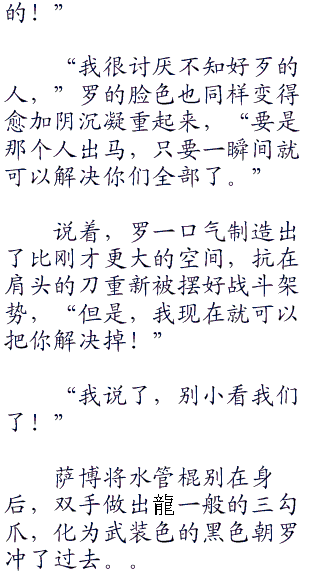 的！”
“我很讨厌不知好歹的
人，”罗的脸色也同样变得
愈加阴沉凝重起来，“要是
那个人出马，只要一瞬间就
可以解决你们全部了。”
说着，罗一口气制造出
了比刚才更大的空间，抗在
肩头的刀重新被摆好战斗架
势，“但是，我现在就可以
把你解决掉！”
“我说了，别小看我们
了！”
萨博将水管棍别在身
后，双手做出龍一般的三勾
爪，化为武装色的黑色朝罗
冲了过去。。